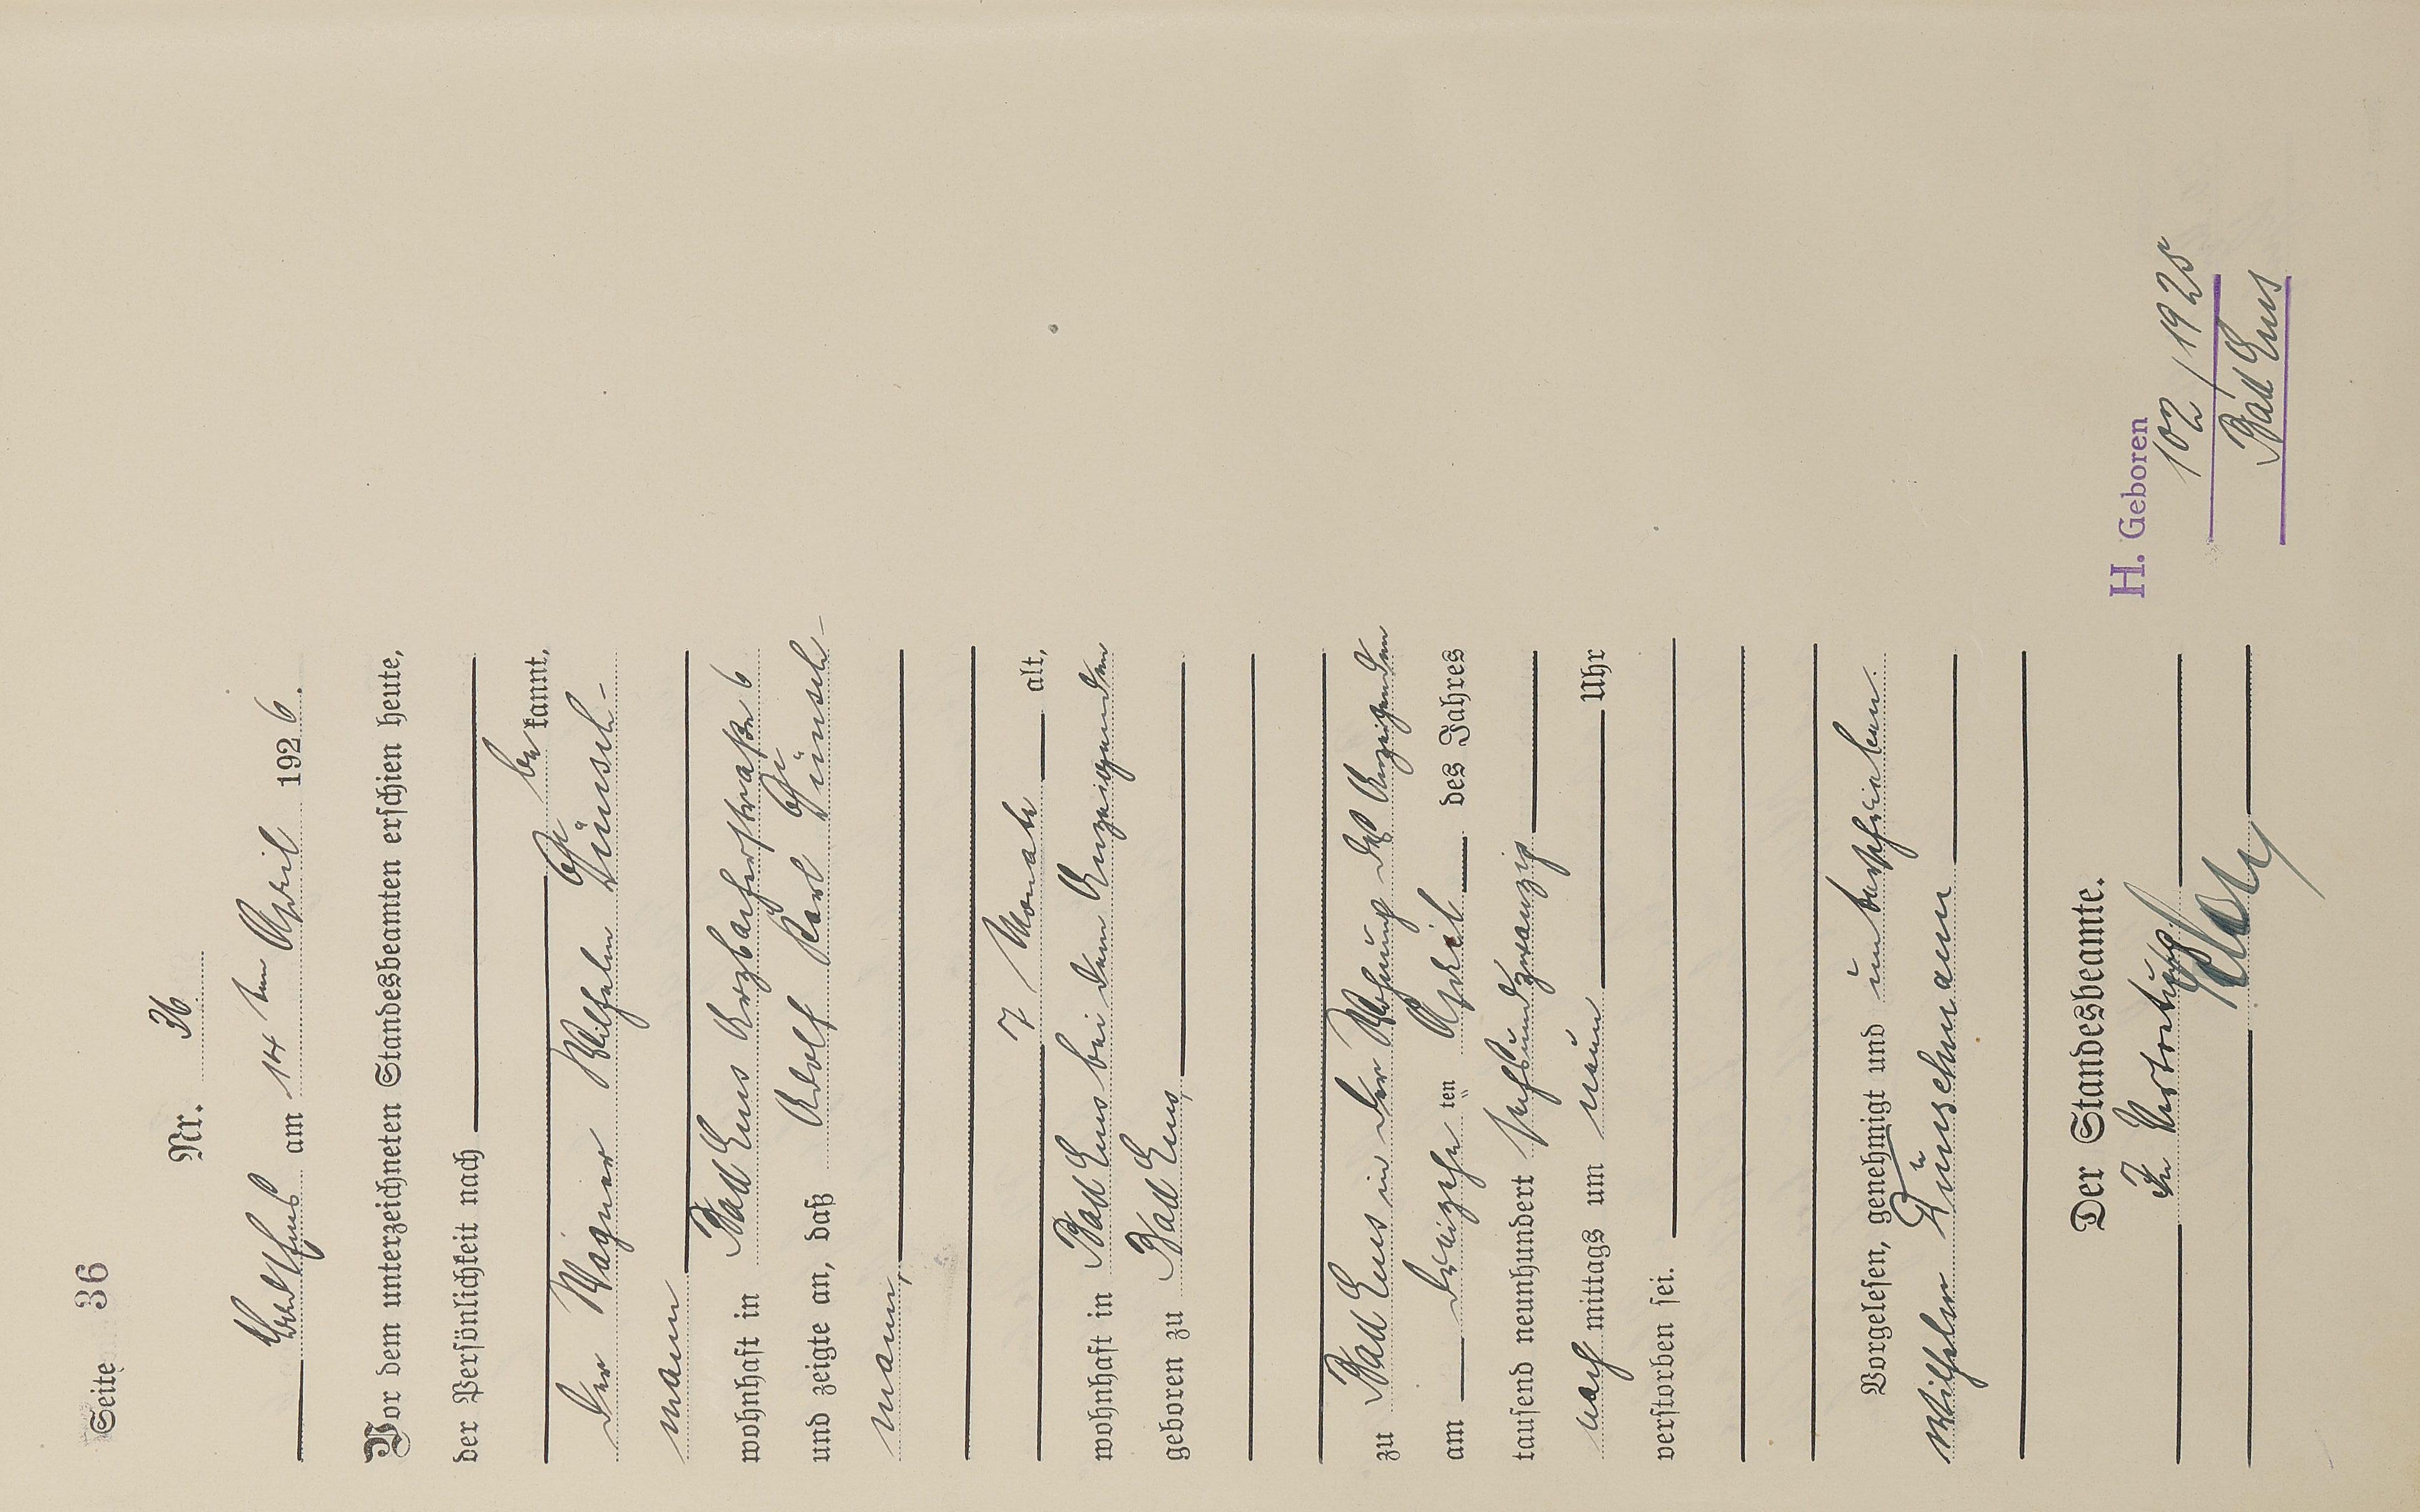 Seite 36
Nr. 36
Bad Ems am 14 ten April 1926.
Vor dem unterzeichneten Standesbeamten erschien heute,
der Persönlichkeit nach
be kannt,
der Wagner Wilhelm Dünsch-
mann
wohnhaft in Bad Ems Arzbacherstraße 6
und zeigte an, daß Adolf Karl Dünsch-
mann,
7 Monate alt,
wohnhaft in Bad Ems bei dem Anzeigenden
geboren zu Bad Ems,
zu Bad Ems in der Wohnung des Anzeigenden
am dreizehn ten April des Jahres
tausend neunhundert sechsundzwanzig
nach mittags um neun Uhr
verstorben sei.
Vorgelesen, genehmigt und unterschrieben.
Wilhelm Dünschmann
Der Standesbeamte.
In Vertretung
H. Geboren
102/1925
Bad Ems